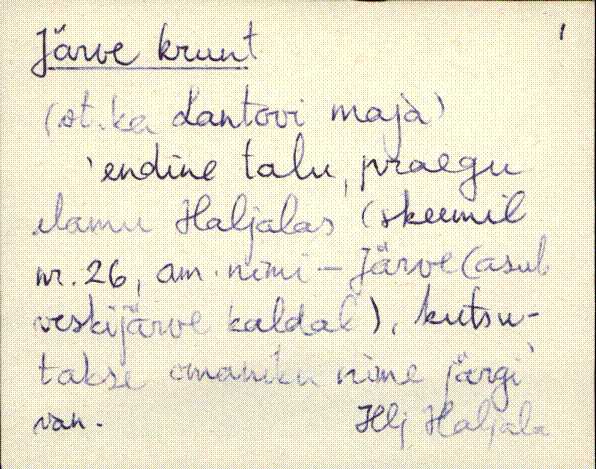 1
Järve krunt
(vt. ka Lantovi maja)
'endine talu, praegu
elamu Haljalas (skeemil
nr. 26, am. nimi – Järve (asub
veskijärve kaldal'), kutsu-
takse omaniku nime järgi'
van. Hlj Haljala